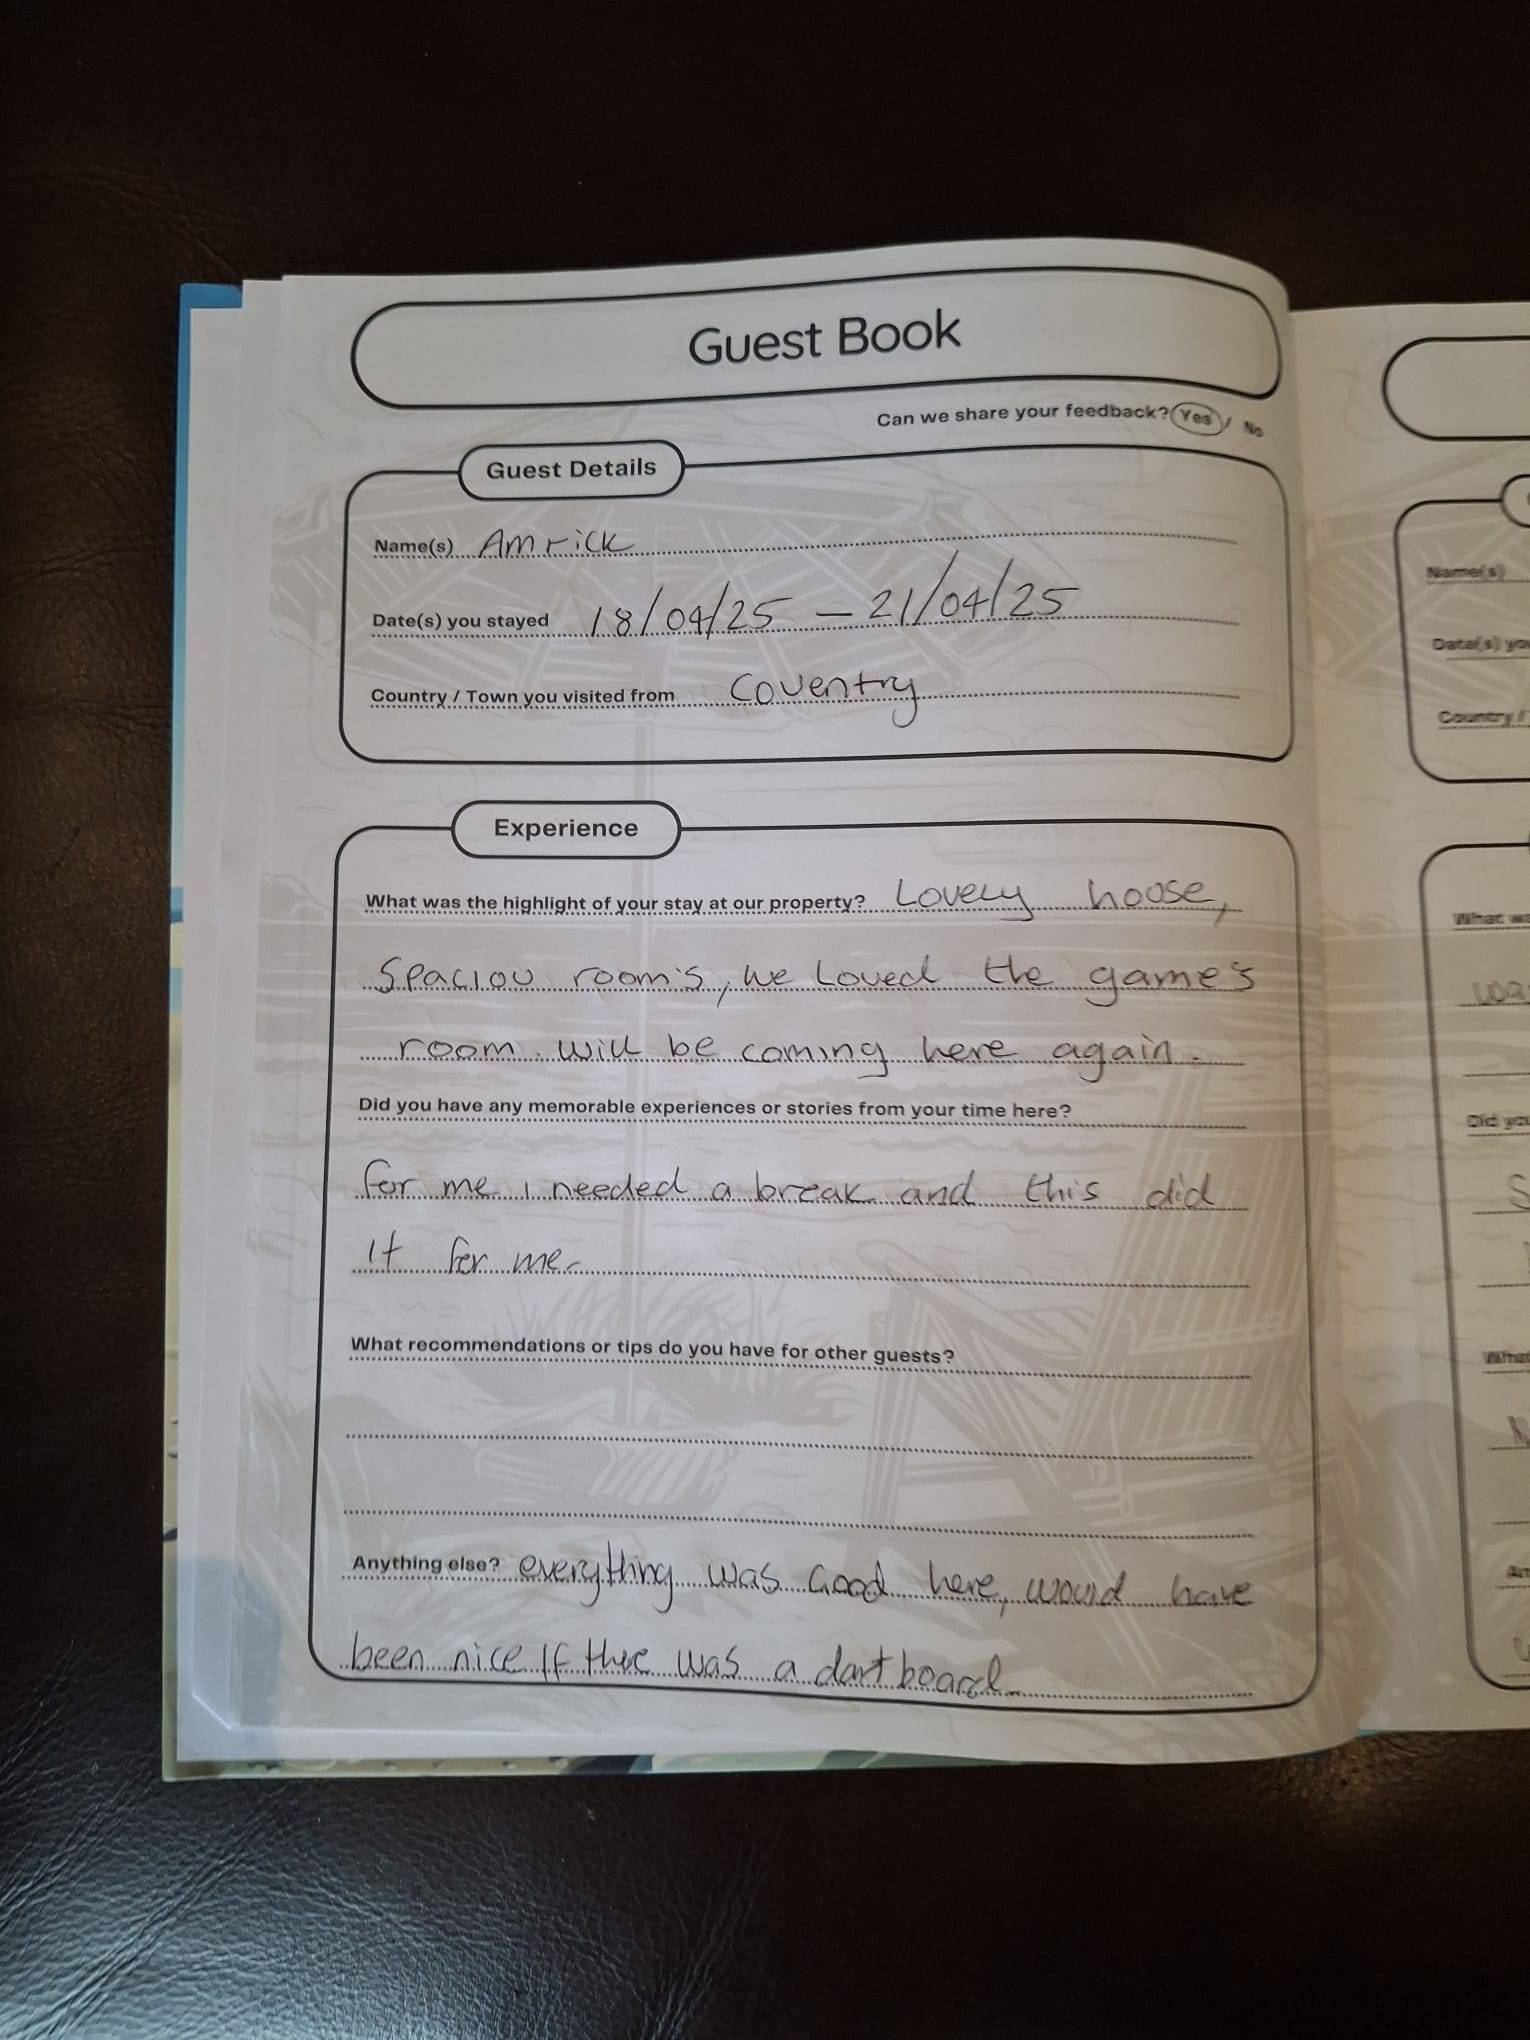 Guest Book
Can we share your feedback? Yes / No
Guest Details
Name(s) Amrick
Date(s) you stayed 18/04/25 - 21/04/25
Country / Town you visited from Coventry
Experience
What was the highlight of your stay at our property? Lovely hoose,
Spaciou room's, we Loved the game's
room. will be coming here again.
Did you have any memorable experiences or stories from your time here?
for me i needed a break and this did
it for me.
What recommendations or tips do you have for other guests?
Anything else? everything was Good here, would have
been nice If there was a dart board.
Name(s)
Date(s) yo
Country /
What w
Did yo
What